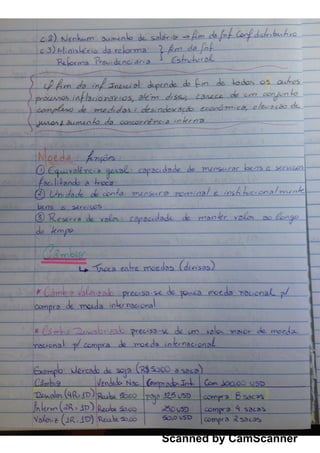 c.2) Nenhum aumento de salário → fim da inf. Conf. distributivo
c.3) Ministério da reforma } fim da inf.
Reforma Previdenciária } Estrutural
O fim da inf Inercial depende do fim de todos os outros
processos inflacionários, além disso, carece de um conjunto
complexo de medidas: desindexação econômica, elevação de
juros e aumento da concorrência interna
Moeda: funções
① Equivalência geral: capacidade de mensurar bens e serviços
facilitando a troca
② Unidade de conta: mensura nominal e institucionalmente
bens e serviços
③ Reserva de valor: capacidade de manter valor ao longo
do tempo
Câmbio
↳ Troca entre moedas (divisas)
* Câmbio Valorizado precisa-se de pouca moeda nacional p/
compra de moeda internacional
* Câmbio Desvalorizado precisa-se de um valor maior de moeda
nacional p/ compra de moeda internacional
Exemplo: Mercado de soja (R$50,00 a saca)
Câmbio | Vendedor Nac. | Comprador Int. | Com 100,00 USD
Desvalor (4R:1D) | Recebe 50,00 | paga 12,5 USD | compra 8 sacas
Interm (2R:1D) | Recebe 50,00 | 25,0 USD | compra 4 sacas
Valoriz (1R:1D) | Recebe 50,00 | 50,0 USD | compra 2 sacas
Scanned by CamScanner